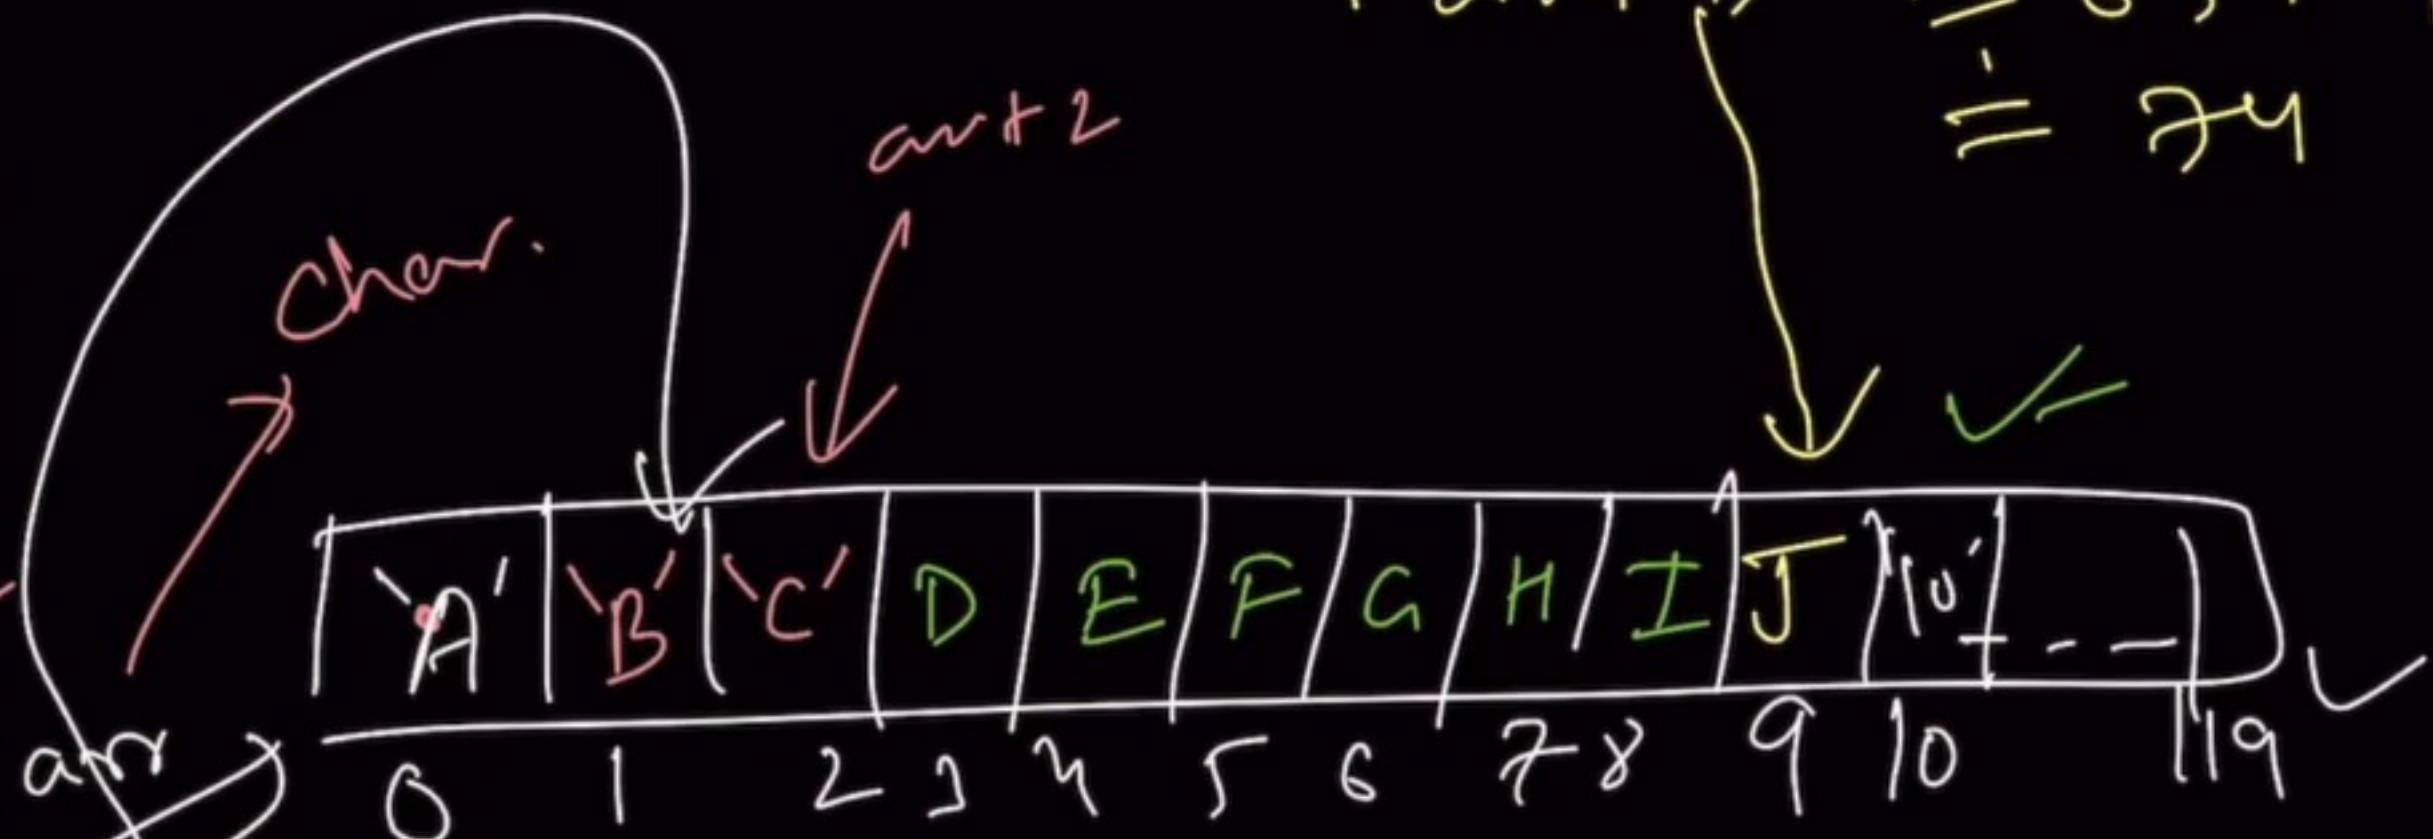 = 74
arr+2
Char.
'A' 'B' 'C' D E F G H I J '\0' - - -
arr 0 1 2 3 4 5 6 7 8 9 10 19